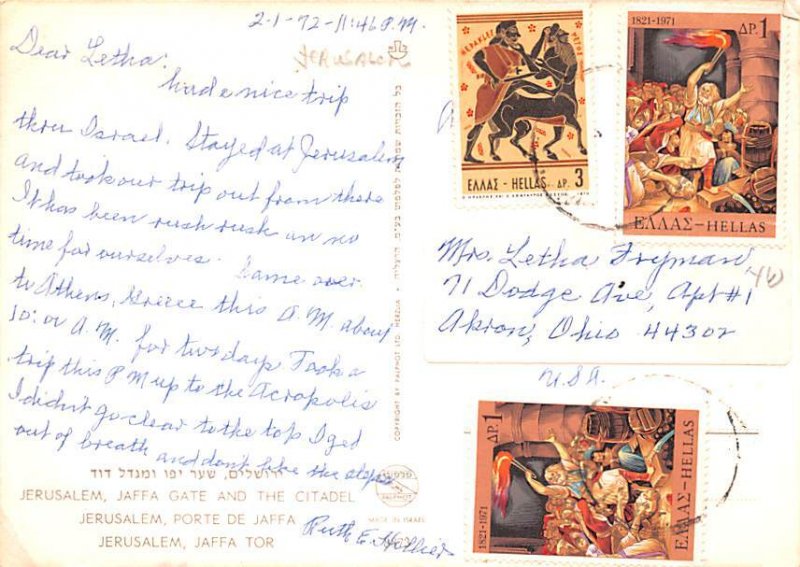 2-1-72-11:46 P.M.
JERUSALEM
Dear Letha:
had a nice trip
thru Israel. Stayed at Jerusalem
and took our trip out from there
It has been rush rush an no
time for ourselves. Came over
to Athens, Greece this A.M. about
10:00 A.M. for two days. Took a
trip this P M up to the Acropolis
I didn't go clear to the top I get
out of breath and don't like the slopes
Ruth E. Hollier
ירושלים, שער יפו ומגדל דוד
JERUSALEM, JAFFA GATE AND THE CITADEL
JERUSALEM, PORTE DE JAFFA
JERUSALEM, JAFFA TOR
MADE IN ISRAEL
PALPHOT
COPYRIGHT BY PALPHOT LTD. HERZLIA
כל הזכויות שמורות לפלפוט בע"מ. הרצליה
ΗΡΑΚΛΕΣ
ΕΛΛΑΣ - HELLAS ΔΡ. 3
1821-1971 ΔΡ. 1
ΕΛΛΑΣ-HELLAS
Mrs. Letha Fryman
71 Dodge Ave, Apt #1
Akron, Ohio 44302
U.S.A.
1821-1971 ΔΡ. 1
ΕΛΛΑΣ-HELLAS